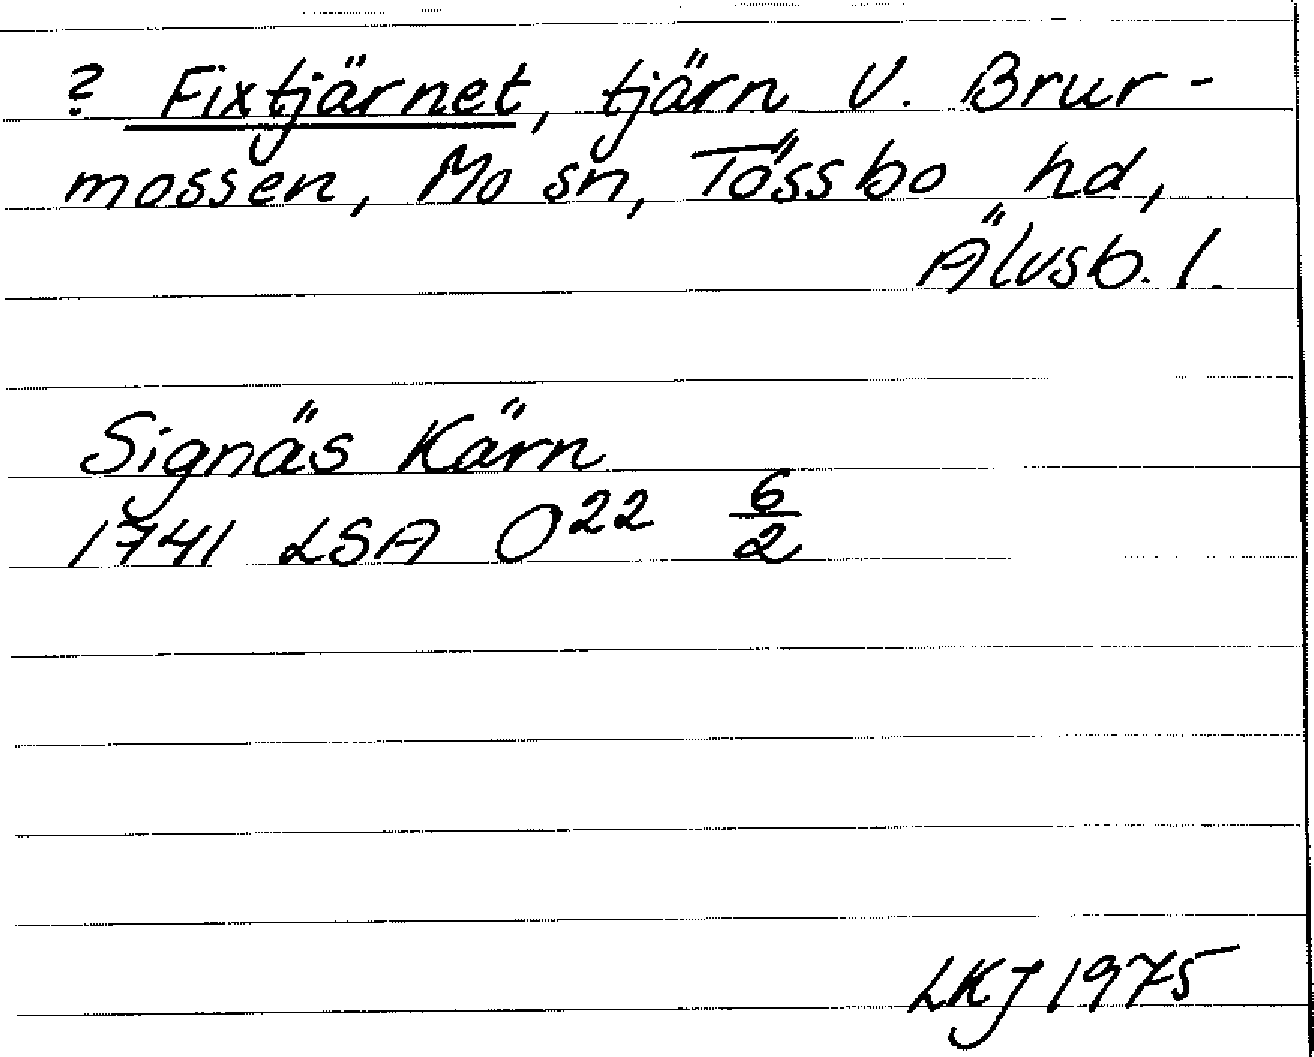 ? Fixtjärnet, tjärn V. Brur-
mossen, Mo sn, Tössbo hd,
Älvsb. l.
Signäs Kärn
1741 LSA O²² 6/2
LKJ 1975